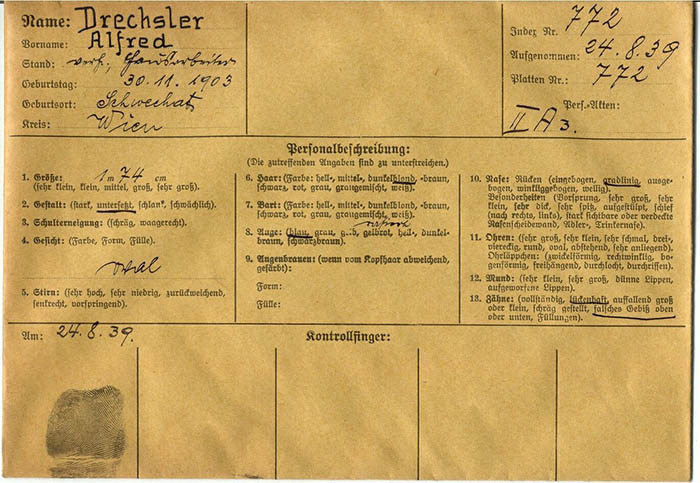 Name: Drechsler
Vorname: Alfred
Stand: verh., Hausarbeiter
Geburtstag: 30.11.1903
Geburtsort: Schwechat
Kreis: Wien
Index Nr. 772
Aufgenommen: 24.8.39
Platten Nr.: 772
Pers.-Akten:
II A 3.
Personalbeschreibung:
(Die zutreffenden Angaben sind zu unterstreichen.)
1. Größe: 1 m 74 cm
(sehr klein, klein, mittel, groß, sehr groß).
2. Gestalt: (stark, untersetzt, schlank, schwächlich).
3. Schulterneigung: (schräg, waagerecht).
4. Gesicht: (Farbe, Form, Fülle).
oval
5. Stirn: (sehr hoch, sehr niedrig, zurückweichend,
senkrecht, vorspringend).
6. Haar: (Farbe: hell-, mittel-, dunkelblond, -braun,
schwarz, rot, grau, graugemischt, weiß).
7. Bart: (Farbe: hell-, mittel-, dunkelblond, -braun,
schwarz, rot, grau, graugemischt, weiß).
rasiert
8. Auge: (blau, grau, gelb, gelbrot, hell-, dunkel-
braun, schwarzbraun).
9. Augenbrauen: (wenn vom Kopfhaar abweichend,
gefärbt):
Form:
Fülle:
10. Nase: Rücken (eingebogen, gradlinig, ausge-
bogen, winkliggebogen, wellig).
Besonderheiten (Vorsprung, sehr groß, sehr
klein, sehr dick, sehr spitz, aufgestülpt, schief
(nach rechts, links), stark sichtbare oder verdeckte
Nasenscheidewand, Adler-, Trinkernase).
11. Ohren: (sehr groß, sehr klein, sehr schmal, drei-,
viereckig, rund, oval, abstehend, sehr anliegend).
Ohrläppchen: (zwickelförmig, rechtwinklig, bo-
genförmig, freihängend, durchlocht, durchrissen).
12. Mund: (sehr klein, sehr groß, dünne Lippen,
aufgeworfene Lippen).
13. Zähne: (vollständig, lückenhaft, auffallend groß
oder klein, schräg gestellt, falsches Gebiß oben
oder unten, Füllungen).
Am: 24.8.39.
Kontrollfinger: